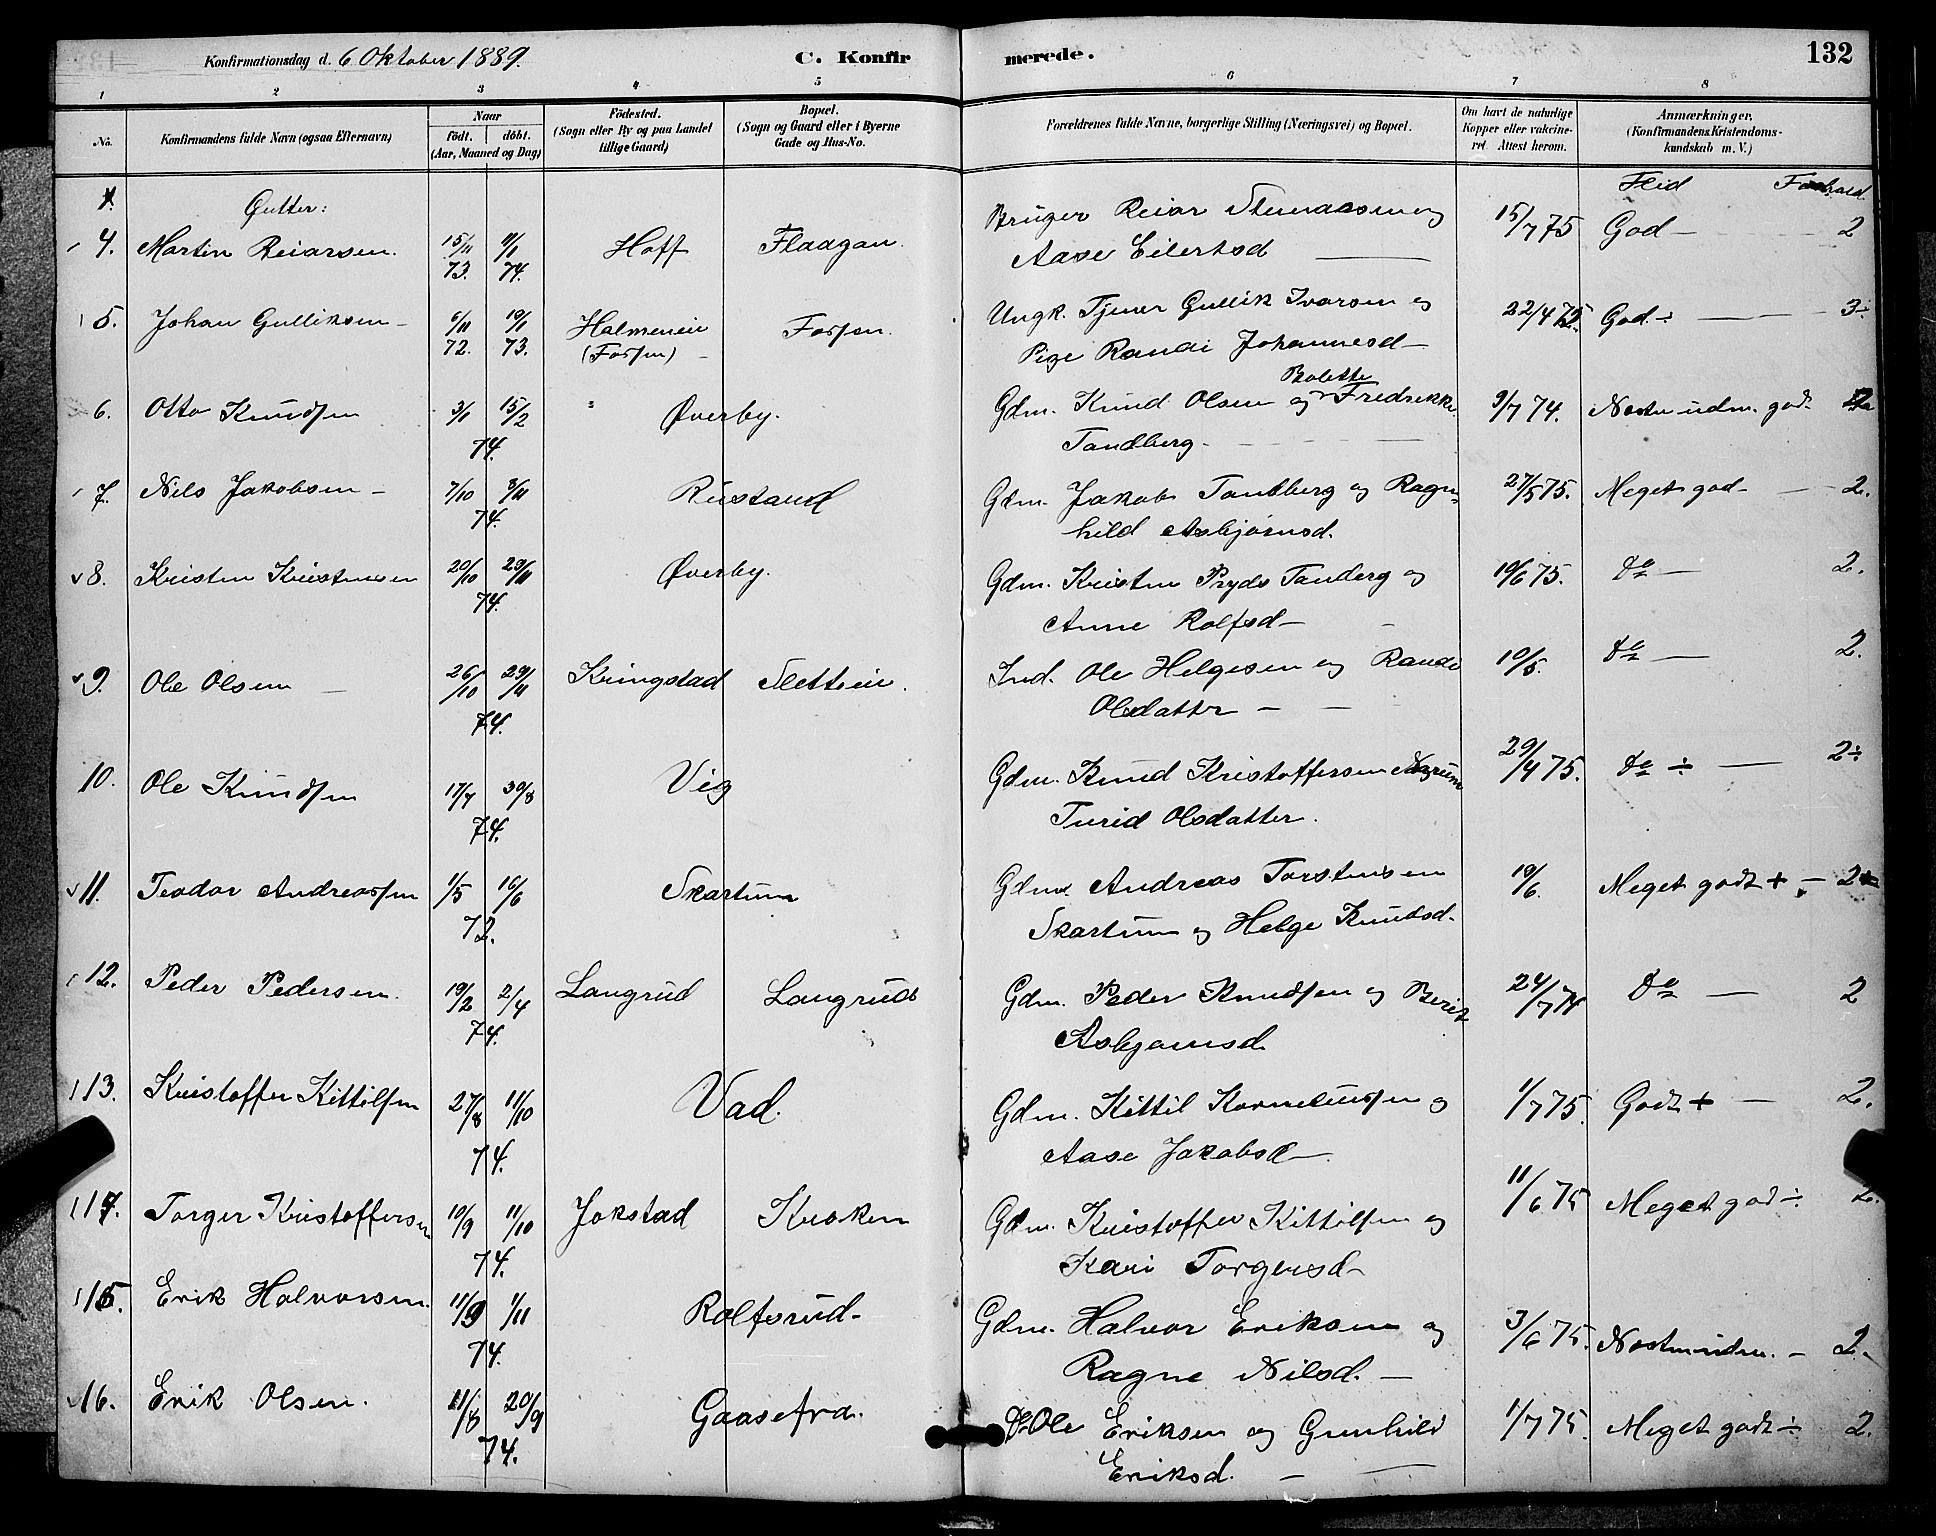 Konfirmationsdag d. 6 Oktober 1889. C. Konfirmerede. 132
1 2 3 4 5 6 7 8
No. Konfirmandens fulde Navn (ogsaa Efternavn) Naar født. døbt. (Aar, Maaned og Dag) Fødested. (Sogn eller By og paa Landet tillige Gaard) Bopæl. (Sogn og Gaard eller i Byerne Gade og Hus-No. Forældrenes fulde Navne, borgerlige Stilling (Næringsvei) og Bopæl. Om havt de naturlige Kopper eller vakcineret. Attest herom. Anmærkninger. (Konfirmandens Kristendomskundskab m. V.)
Gutter: Flid Forhold
4. Martin Reiarsen. 15/11 73. 11/1 74. Hoff Flaagan. Bruger Reiar Steinarsen og 15/7 75 God — 2
Aase Eilertsd —
5. Johan Gulliksen — 6/11 72. 19/1 73. Halmeneie (Forssen) — Forssen. Ungk. Tjener Gullik Ivarsen og 22/4 75. God ÷ — 3÷
Pige Randi Johannesd —
6. Otto Knudsen 3/1 15/2 74. " Øverby. Gdm. Knud Olsen og Bolette Fredrikke 9/7 74. Næsten udm. god. 2
Tandberg —
7. Nils Jakobsen — 7/10 3/11 74. Rustand Gdm. Jakob Tandberg og Ragn- 27/5 75. Meget god — 2.
hild Asbjørnsd.
8. Kristen Kristensen 20/10 29/11 74. Øverby. Gdm. Kristen Pryds Tanberg og 19/6 75. do — 2.
Anne Rolfsd —
9. Ole Olsen — 26/10 29/11 74. Kringstad Sletteie. Ind. Ole Helgesen og Randi 10/5. do — 2.
Olsdatter —
10. Ole Knudsen 17/7 30/8 74. Vig Gdm. Knud Kristoffersen 29/4 75. do ÷ — 2÷
Turid Olsdatter.
11. Teodor Andreassen 1/5 16/6 72. Skartum Gdm. Andreas Torstensen 19/6. Meget godt + — 2
Skartum og Helge Knudsd.
12. Peder Pedersen. 19/2 2/4 74. Langrud Langrud Gdm. Peder Knudsen og Berit 24/7 74 do — 2
Asbjørnsd.
13. Kristoffer Kittilsen 27/8 11/10 74. Vad. Gdm. Kittil Korneliussen og 1/7 75. Godt + — 2.
Aase Jakobsd —
14. Torger Kristoffersen 10/9 11/10 74. Jokstad Kroken Gdm. Kristoffer Kittilsen og 11/6 75 Meget god ÷ 2.
Kari Torgersd —
15. Erik Halvorsen. 11/9 1/11 74. Rolfsrud — Gdm. Halvor Eriksen og 3/6 75. Næsten udm. — 2.
Ragne Nilsd. —
16. Erik Olsen. 11/8 20/9 74. Gaasefra. Ole Eriksen og Gunhild 1/7 75. Meget godt ÷ 2.
Eriksd. —